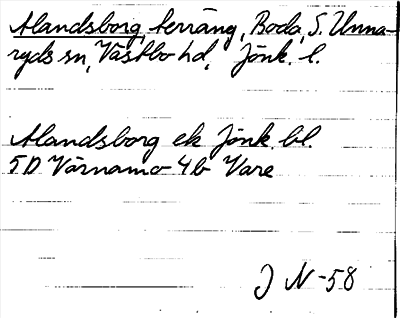 Alandsborg, terräng, Boda, S. Unna-
ryds sn, Västbo hd, Jönk. l.
Alandsborg ek Jönk. bl.
5D Värnamo 4b Vare
J N-58